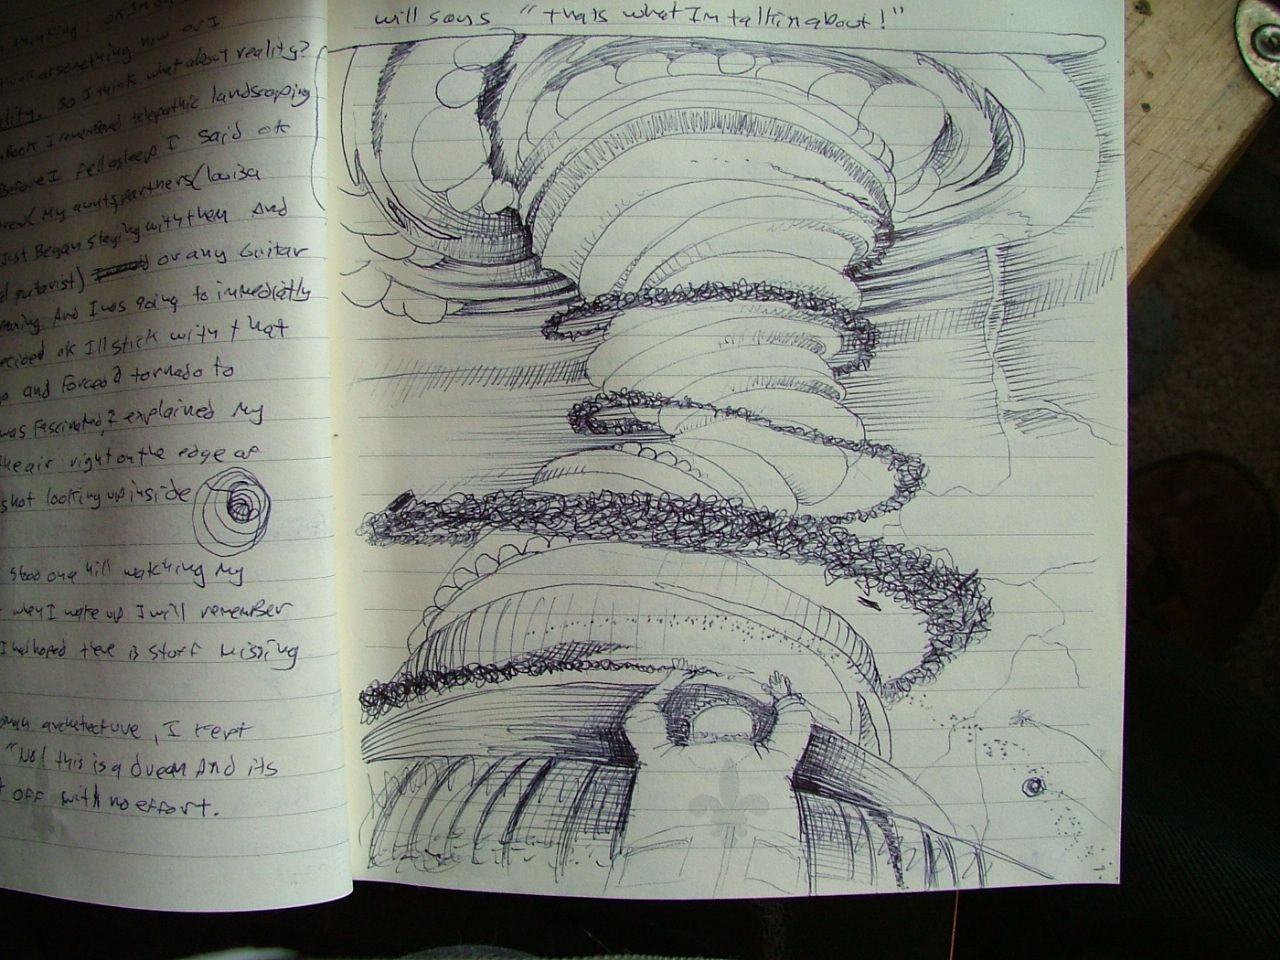 thinking
think of something now or I
ality. so I think what about reality?
Book I remembered telepathic landscaping
Before I fell asleep I said ok
(My aunts partners (louisa
Just Began staying with them And
guitarist) or any Guitar
And I was going to immediatly
ecided ok Ill stick with that
and forced a tornado to
was fascinated, I explained My
the air right on the edge of
shot looking up inside
stood on a hill watching My
when I wake up I will remember
I had hoped there is stuff missing
architecture, I kept
"No! this is a dream And its
off with no effort.
will says "that's what Im talking about!"